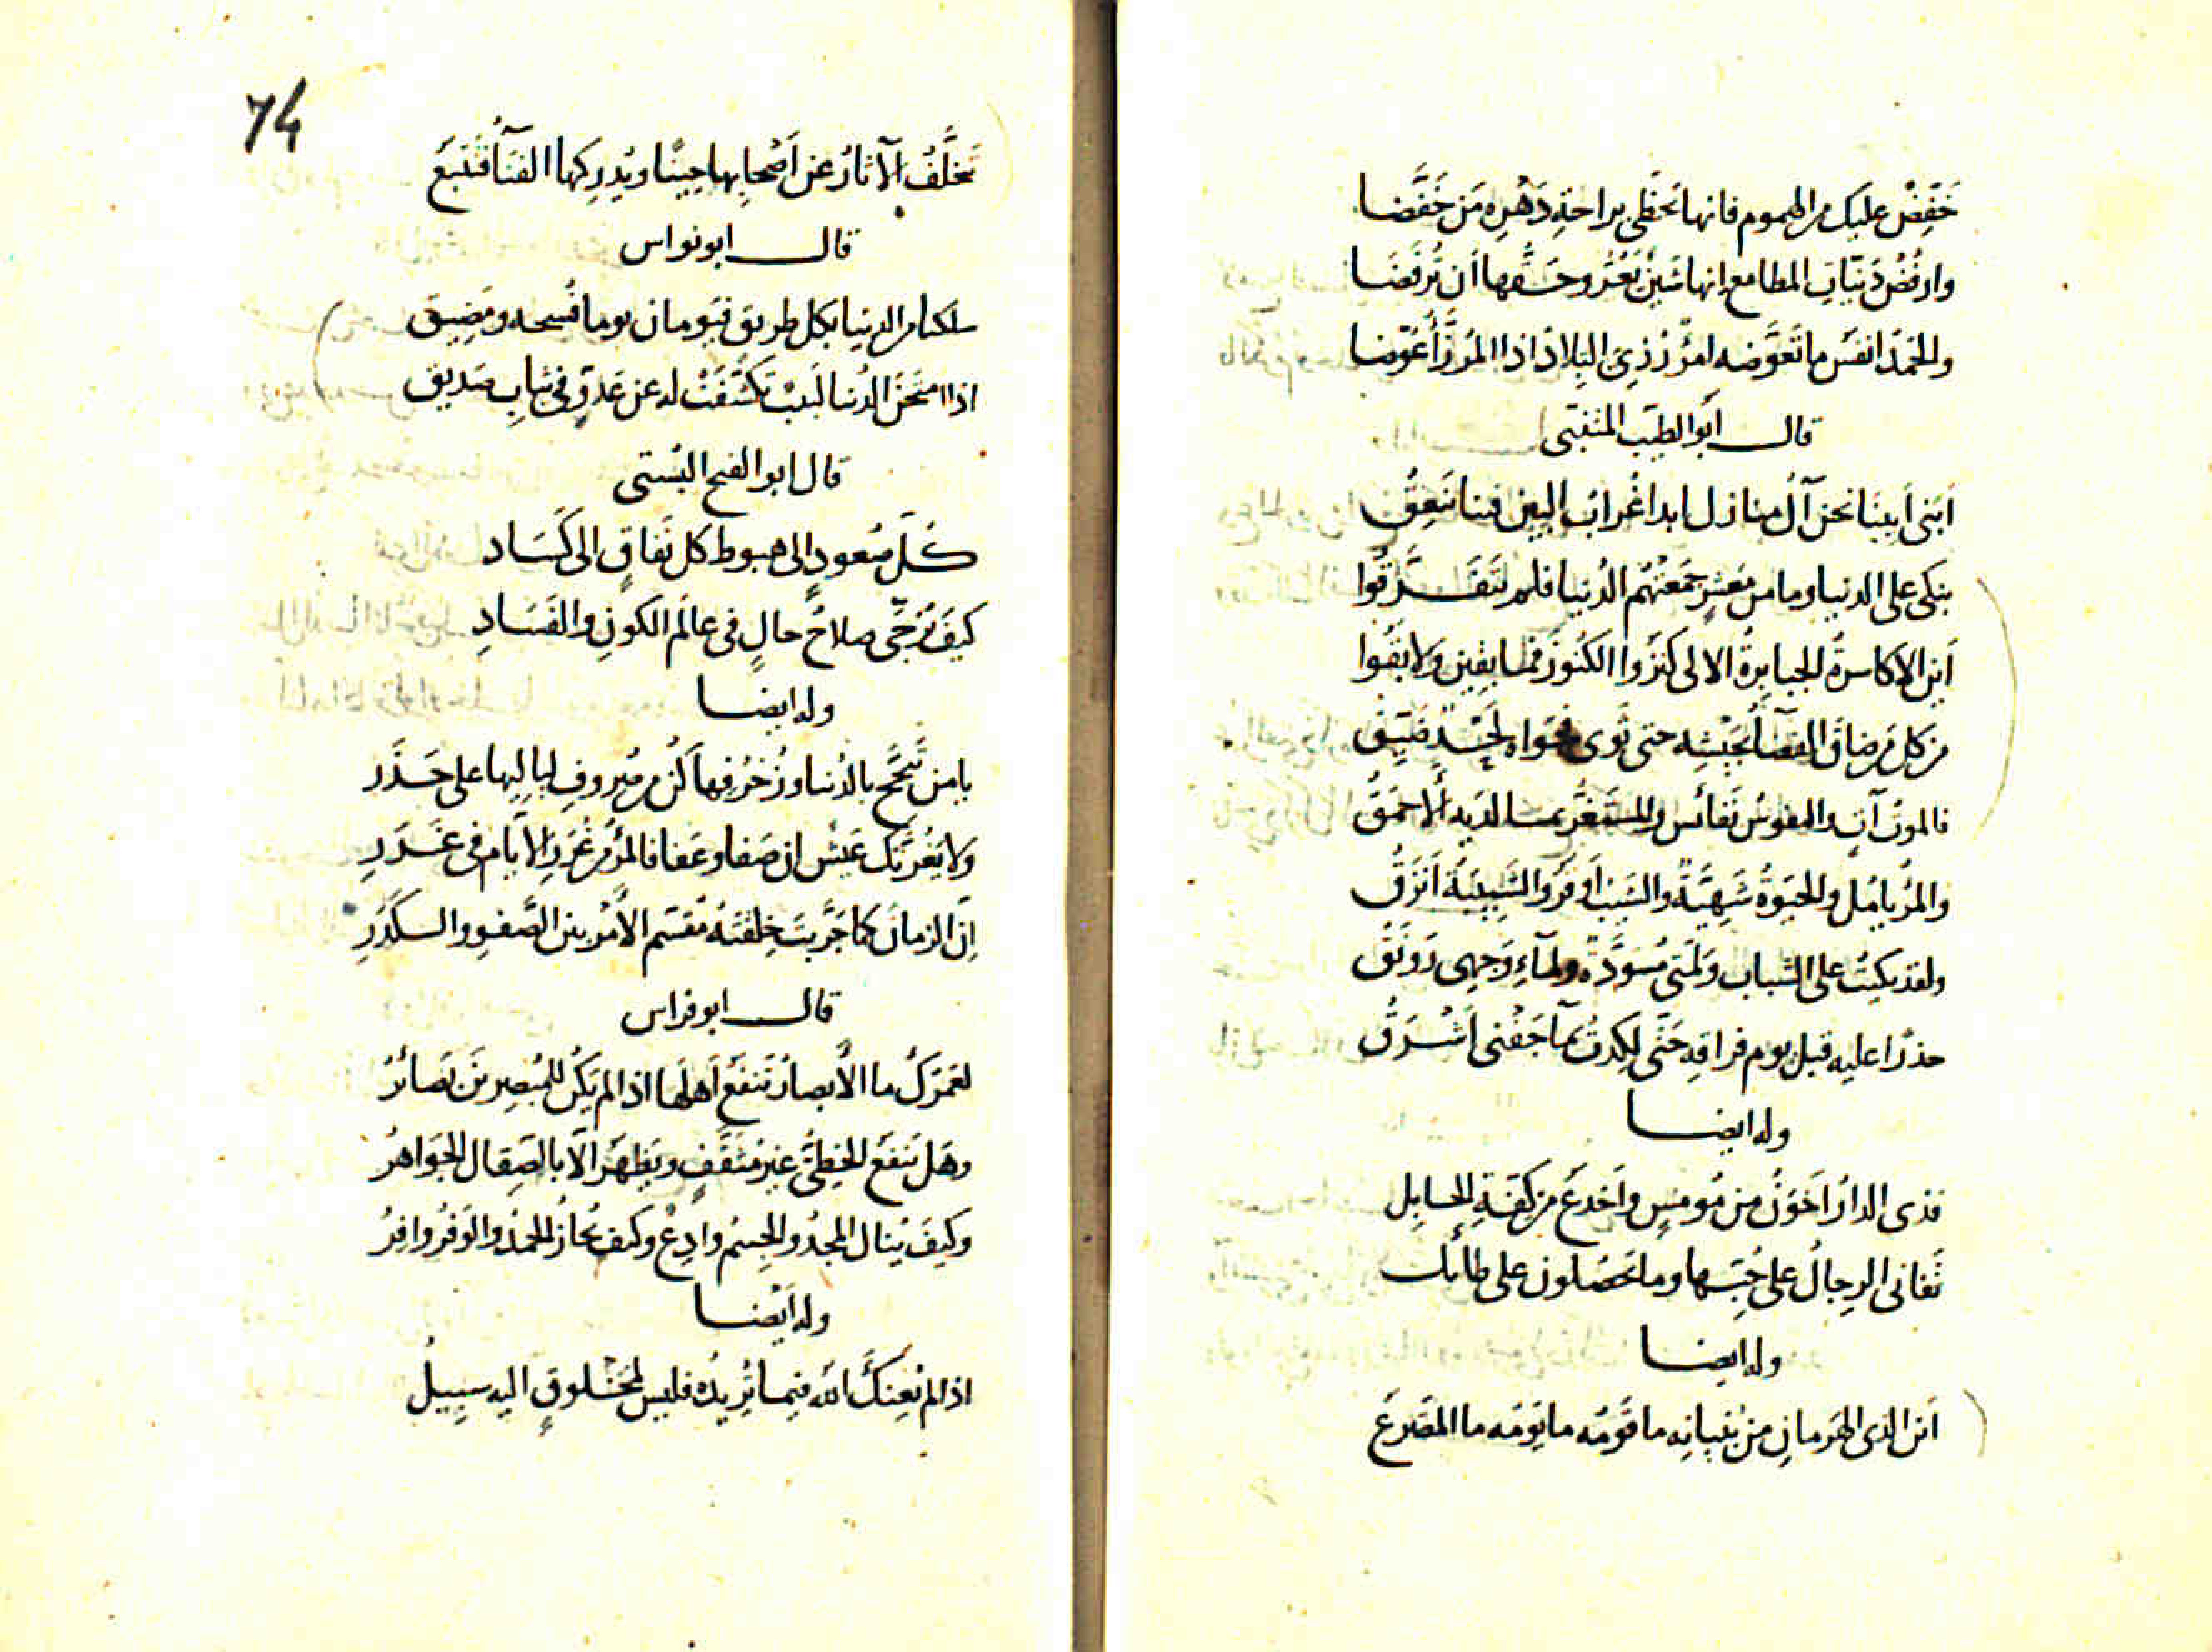 خَفِّضْ عليك من الهموم فانها تَحظى براحةِ دَهْرِه مَن خَفَّضا
وارفُضْ دَنيّاتِ المطامع انها شَينٌ يَعُرُّ وحَقُّها أن تُرفَضَا
والحَمْدُ انفَسُ ما تَعَوَّضه امرُؤٌ رُزِئَ التِلادَ اذا المُرَزَّأُ عُوِّضا
قال ابو الطيب المتنبّى
اَبَنى اَبينَا نحن آلُ منازل ابدا غُرابُ البين فينا يَنعِقُ
نبكى على الدنيا وما من مَعشرٍ جَمعَتْهُم الدُنيا فلم يتَفَرَّقُوا
اَين الاكاسرةُ الجبابرةُ الالى كنَزُوا الكنُوزَ فما بقين ولا بَقُوا
من كل مَن ضاقَ الفضآءُ بجَيْشِه حتى ثَوى فحَواه لَحْدٌ ضَيِّقُ
فالموتُ آتٍ والنفوسُ نَفائس والمستَغِرُّ بما لديه الاَحمَقُ
والمرُ يامُل والحيوةُ شَهِيَّةٌ والشَيبُ اَوقَرُ والشَبِيبَةُ اَنزَقُ
ولقد بكيتُ على الشَباب ولِمَّتى مُسوَدَّةٌ ولمآءِ وَجهِى رَونَقُ
حذرًا عليه قبل يوم فراقِه حَتّى لكِدتُ بمآ جَفْنى اَشْرَقُ
وله ايضا
فذى الدارُ اَخوَنُ من مُومسٍ واَخدعُ من كِفّةِ الحابِل
تَفانى الرِجالُ على حُبِّها وما تَحصَلون على طائل
وله ايضا
اَين الذى الهَرمانِ من بُنيانِه ما قَومُه ما يَومُه ما المَصْرعُ
74
تَخلَّفُ الآثارُ عن اَصْحابِها حِينًا ويُدرِكها الفنآُ فتَتبَعُ
قال ابو نواس
سلكنا من الدنيا بكل طريق فيومان يوما فُسحه ومَضِيق
اذا امتَحَن الدُنيا لَبيبٌ تكَشَّفَتْ له عن عَدوٍّ فى ثيابِ صَديق
قال ابو الفتح البُستى
كُلُّ صُعودٍ الى هبوط كل نَفاقٍ الى كَسَاد
كيفَ تُرجّى صلاحُ حالٍ فى عالم الكونِ والفَسَادِ
وله ايضا
يا من تَبَجَّح بالدُنيا وزُخرُفِها كُن من صُروفِ لياليها على حَذَر
ولا يَغُرَّنك عَيْش ان صَفا وعَفا فالمرُ من غُرَرِ الاَيام فى غَرَرِ
اِنّ الزمان كما جَرَّبتَ خِلقَتَهُ مُقسَم الاَمْر بين الصَّفوِ والكَدَرِ
قال ابو فراس
لعَمرُكَ ما الاَبصارُ تَنفَعُ اَهلَها اذا لم يَكُن للمُبصِرينَ بَصائرُ
وهَل ينفع الخطِىُّ غيرَ مُثَقَّفٍ ويَظهَرُ الّا بالصِقال الجَواهرُ
وكيفَ يُنال المَجدُ والجسمُ وادِعٌ وكيف يُحازُ الحَمدُ والوَفرُ وافِرُ
وله اَيضا
اذا لم يُعِنكَ الله فيما تُرِيدُه فليس لمخلوقٍ اليه سبيلُ